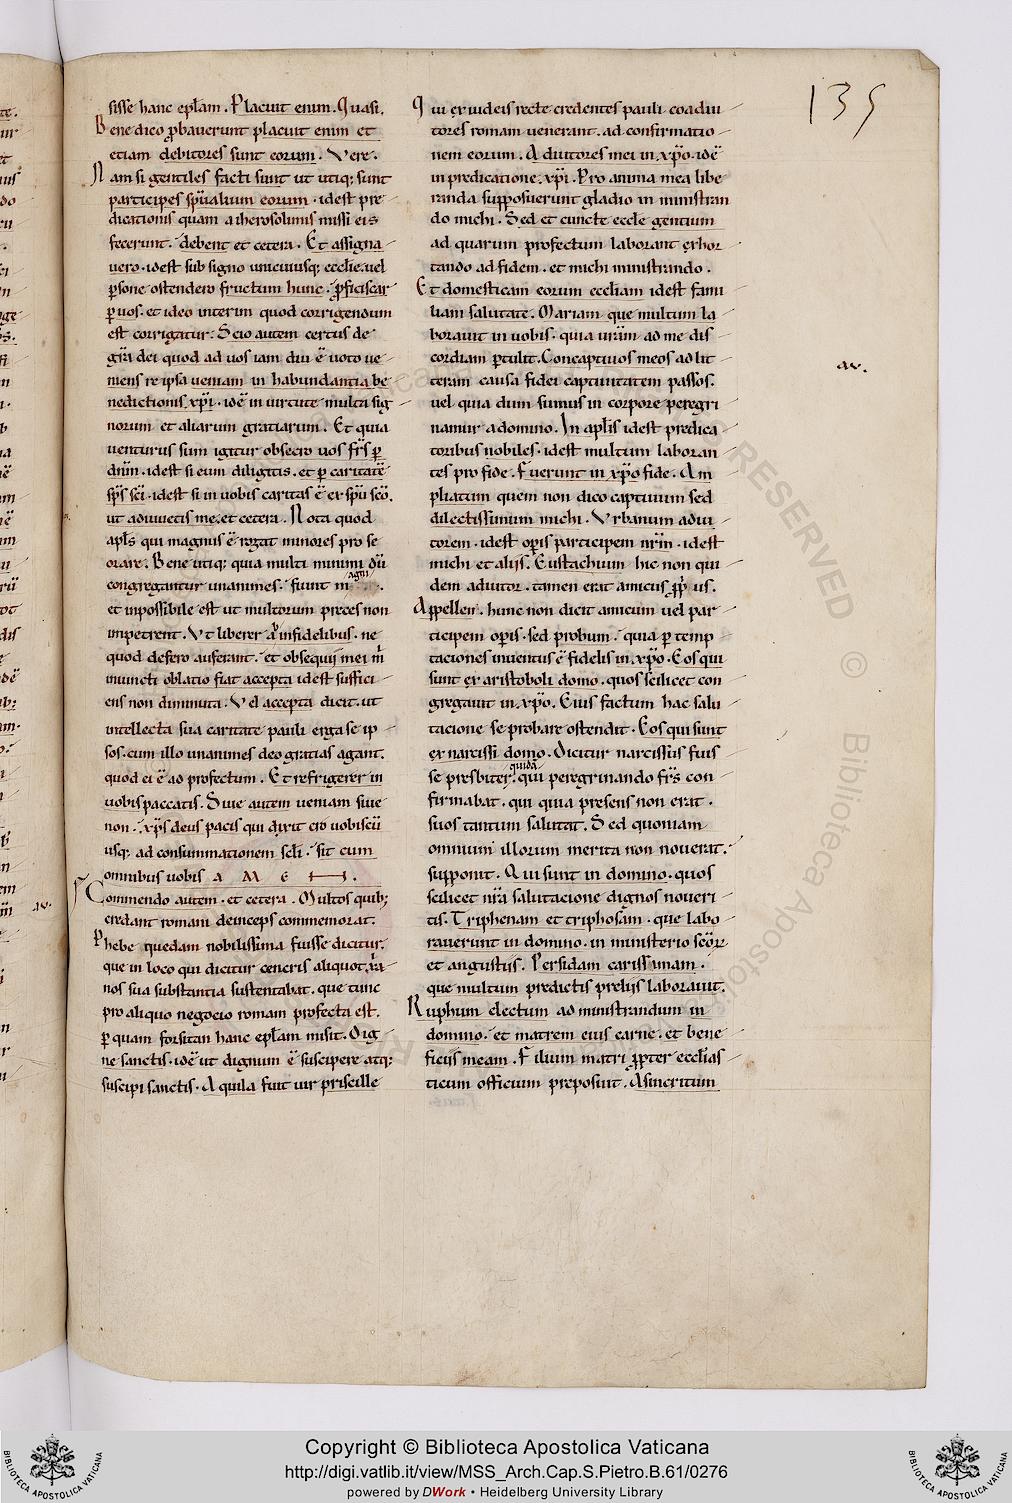 135
sisse hanc epl̄am. Placuit enim. Quasi.
Bene dico ꝓbauerunt placuit enim et
etiam debitores sunt eorum. Vere.
Nam si gentiles facti sunt ut utiq; sunt
participes sp̄ualium eorum. idest pre
dicationis quam a iherosolimis missi eis
fecerunt. debent et cetera. Et assigna
uero. idest sub signo unicuiusq; eccl̄ie uel
ꝑsone ostendero fructum hunc. ꝓficiscar
ꝑ uos. et ideo interim quod corrigendum
est corrigatur. Scio autem certus de
gr̄a dei quod ad uos iam diu ē uoto ue
niens re ipsa ueniam in habundantia be
nedictionis xp̄i. idē in uirtute multa sig
norum et aliarum gratiarum. Et quia
uenturus sum igitur obsecro uos fr̄s ꝑ
dn̄m. idest si eum diligitis. et ꝑ caritatē
sp̄s sc̄i. idest si in uobis caritas ē ex sp̄u sc̄o.
ut adiuuetis me. et cetera. Nota quod
apl̄s qui magnus ē rogat minores pro se
orare. Bene utiq; quia multi minimi dū
congregantur unanimes. fiunt magni
et inpossibile est ut multorum preces non
impetrent. Vt liberer a infidelibus. ne
quod desero auferant. et obsequii mei m̄
iniuncti oblatio fiat accepta idest suffici
ens non diminuta. Vel accepta dicit. ut
intellecta sua caritate pauli erga se ip
sos. cum illo unanimes deo gratias agant.
quod ei ē ad profectum. Et refrigerer in
uobis paccatis. Siue autem ueniam siue
non. xp̄s deus pacis qui dixit ero uobiscū
usq; ad consummationem scl̄i. sit cum
omnibus uobis A M E N.
Commendo autem. et cetera. Multos quib;
credant romani deinceps commemorat.
Phebe quedam nobilissima fuisse dicitur.
que in loco qui dicitur cencris aliquot xp̄ia
nos sua substantia sustentabat. que tunc
pro aliquo negocio romam profecta est.
ꝑ quam forsitan hanc epl̄am misit. Dig
ne sanctis. idē ut dignum ē suscipere atq;
suscipi sanctis. Aquila fuit uir priscille
aꝟ.
Qui ex iudeis recte credentes pauli coadiu
tores romam uenerant. ad confirmatio
nem eorum. Adiutores mei in xp̄o. idē
in predicatione xp̄i. Pro anima mea libe
randa supposuerunt gladio in ministran
do michi. Sed et cuncte eccl̄e gentium
ad quarum profectum laborant exhor
tando ad fidem. et michi ministrando.
Et domesticam eorum eccl̄iam idest fami
liam salutate. Mariam que multum la
borauit in uobis. quia ur̄am ad me dis
cordiam ꝑtulit. Concaptiuos meos ad lit
teram causa fidei captiuitatem passos.
uel quia dum sumus in corpore peregri
namur a domino. In apl̄is idest predica
toribus nobiles. idest multum laboran
tes pro fide. Fuerunt in xp̄o fide. Am
pliatum quem non dico captiuum sed
dilectissimum michi. Vrbanum adiu
torem. idest oꝑis participem nr̄m. idest
michi et aliis. Eustachium hic non qui
dem adiutor. tamen erat amicus ꝓp̄ us.
Appellen. hunc non dicit amicum uel par
ticipem oꝑis. sed probum. quia ꝑ temp
taciones inuentus ē fidelis in xp̄o. Eos qui
sunt ex aristoboli domo. quos scilicet con
gregauit in xp̄o. Eius factum hac salu
tacione se probare ostendit. Eos qui sunt
ex narcissi domo. Dicitur narcissus fuis
se presbiter quidā. qui peregrinando fr̄s con
firmabat. qui quia presens non erat.
suos tantum salutat. Sed quoniam
omnium illorum merita non nouerat.
supponit. Qui sunt in domino. quos
scilicet nr̄a salutacione dignos noueri
tis. Triphenam et triphosam. que labo
rauerunt in domino. in ministerio sc̄oꝝ
et angustiis. Persidam carissimam.
que multum predictis preliis laborauit.
Ruphum electum ad ministrandum in
domino. et matrem eius carne. et bene
ficiis meam. Filium matri ꝓpter ecclias
ticum officium preposuit. Asincritum
aꝟ.
Copyright © Biblioteca Apostolica Vaticana
http://digi.vatlib.it/view/MSS_Arch.Cap.S.Pietro.B.61/0276
powered by DWork • Heidelberg University Library